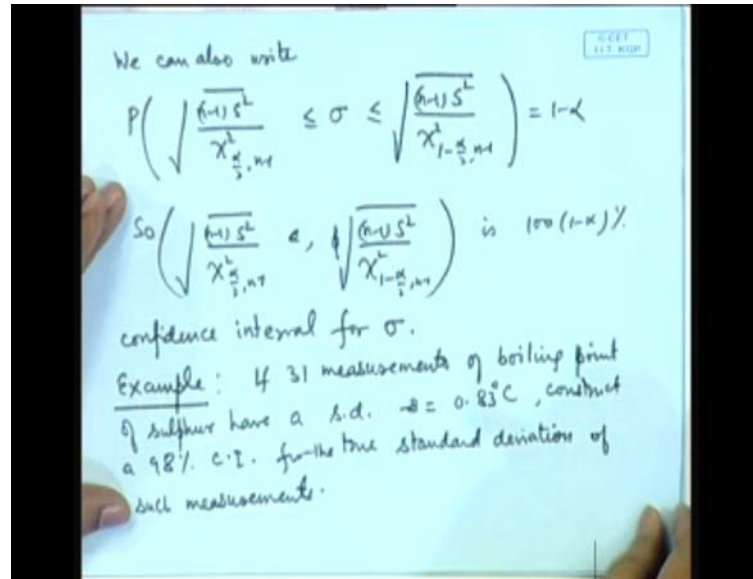 We can also write
CCET
I.I.T. KGP
P( √((n-1) S² / χ²_{α/2, n-1}) ≤ σ ≤ √((n-1) S² / χ²_{1-α/2, n-1}) ) = 1-α
So ( √((n-1) S² / χ²_{α/2, n-1}) , √((n-1) S² / χ²_{1-α/2, n-1}) ) is 100(1-α)%
confidence interval for σ.
Example: If 31 measurements of boiling point
of sulphur have a s.d. s = 0.83°C, construct
a 98% C.I. for the true standard deviation of
such measurements.